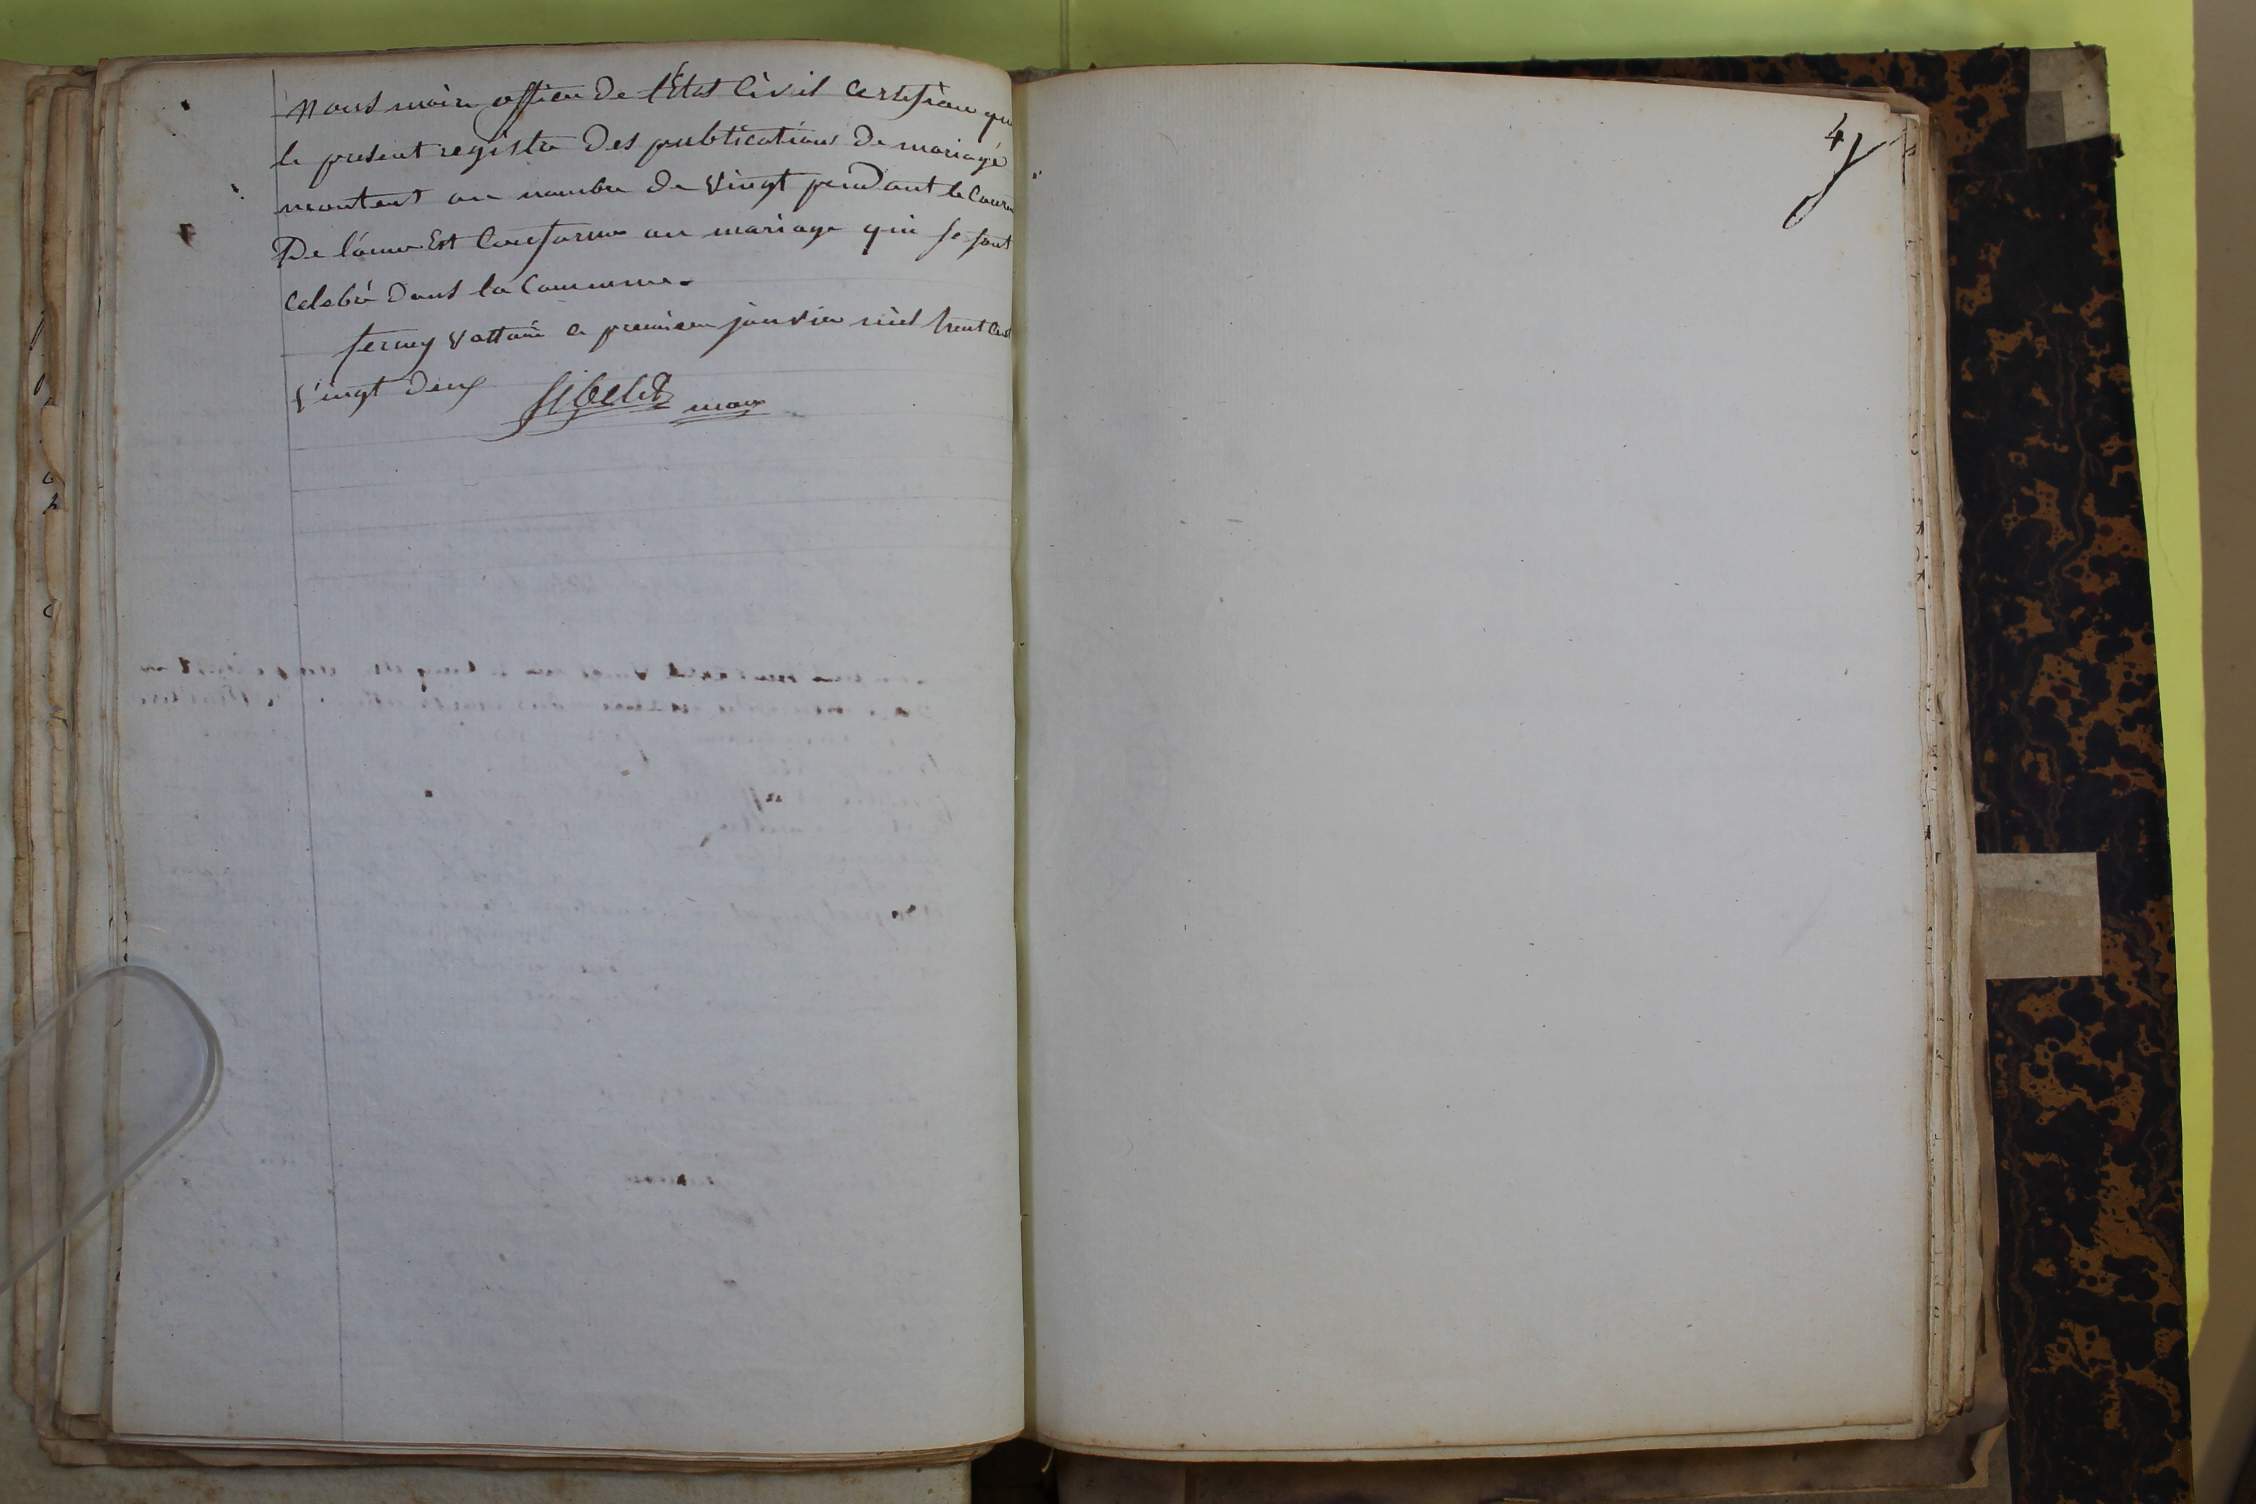 Nous maire officier De l'État Civil Certifion que
le present registre Des publications De mariage
montent au nombre De Vingt pendant le Cours
De l'anne Est Conforme au mariage qui se sont
Celebré Dans la Commune.
ferney Voltaire Ce premier janvier mil huit Cent
Vingt Deux maire
4